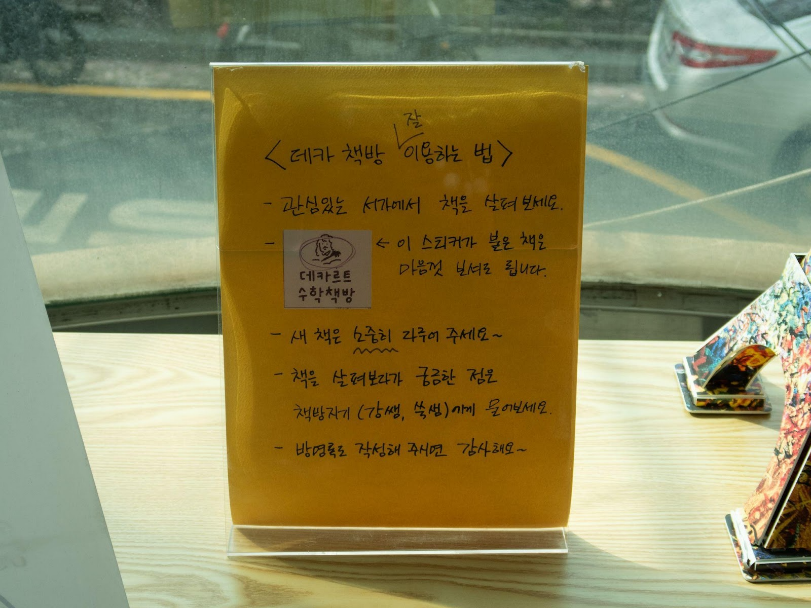 <데카 책방 잘 이용하는 법>
- 관심있는 서가에서 책을 살펴 보세요.
- 데카르트 수학책방 ← 이 스티커가 붙은 책은
마음껏 보셔도 됩니다.
- 새 책은 소중히 다루어 주세요~
- 책을 살펴보다가 궁금한 점은
책방지기 (강쌤, 쑥쌤)에게 물어보세요.
- 방명록도 작성해 주시면 감사해요~